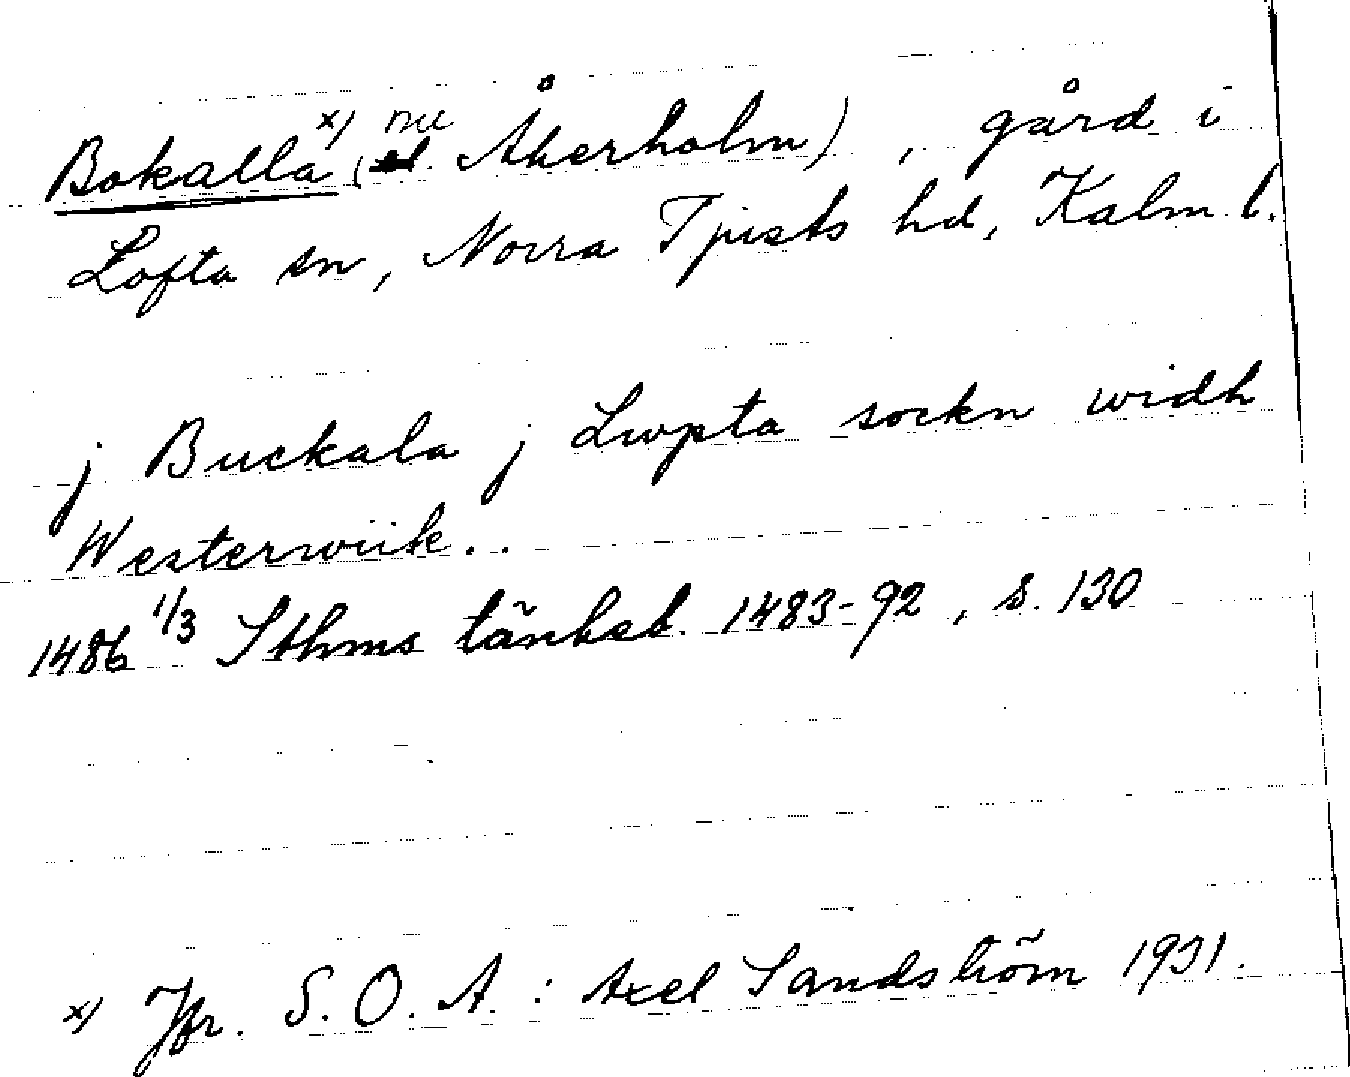 Bokalla x) (nu Åkerholm), gård i
Lofta sn, Norra Tjusts hd, Kalm. l.
j Buckala j Lwpta sockn widh
Westerwiik..
1486 1/3 Sthms tänkeb. 1483-92, s. 130
x) Jfr. S. O. A. : Axel Sandström 1931.